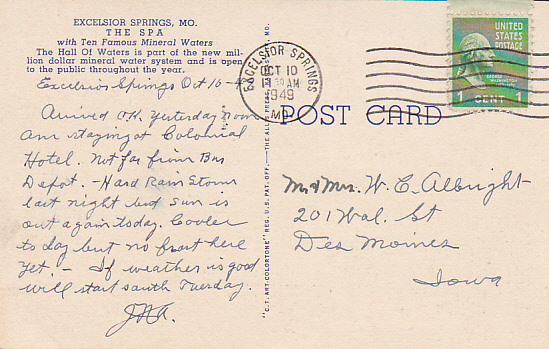 EXCELSIOR SPRINGS, MO.
THE SPA
with Ten Famous Mineral Waters
The Hall Of Waters is part of the new mil-
lion dollar mineral water system and is open
to the public throughout the year.
Excelsior Springs Oct 10-
Arrived O.K. Yesterday noon
Am staying at Colonial
Hotel. Not far from Bus
Depot. - Hard Rain Storm
last night but sun is
out again today. Cooler
to day but no frost here
yet. - If weather is good
will start south Tuesday.
"C.T. ART-COLORTONE" REG. U.S. PAT. OFF.
EXCELSIOR SPRINGS
OCT 10
AM
1949
MO.
UNITED
STATES
POSTAGE
GEORGE
WASHINGTON
1 CENT 1
POST CARD
Mr & Mrs. W. C. Albright
201 Wal. St
Des Moines
Iowa